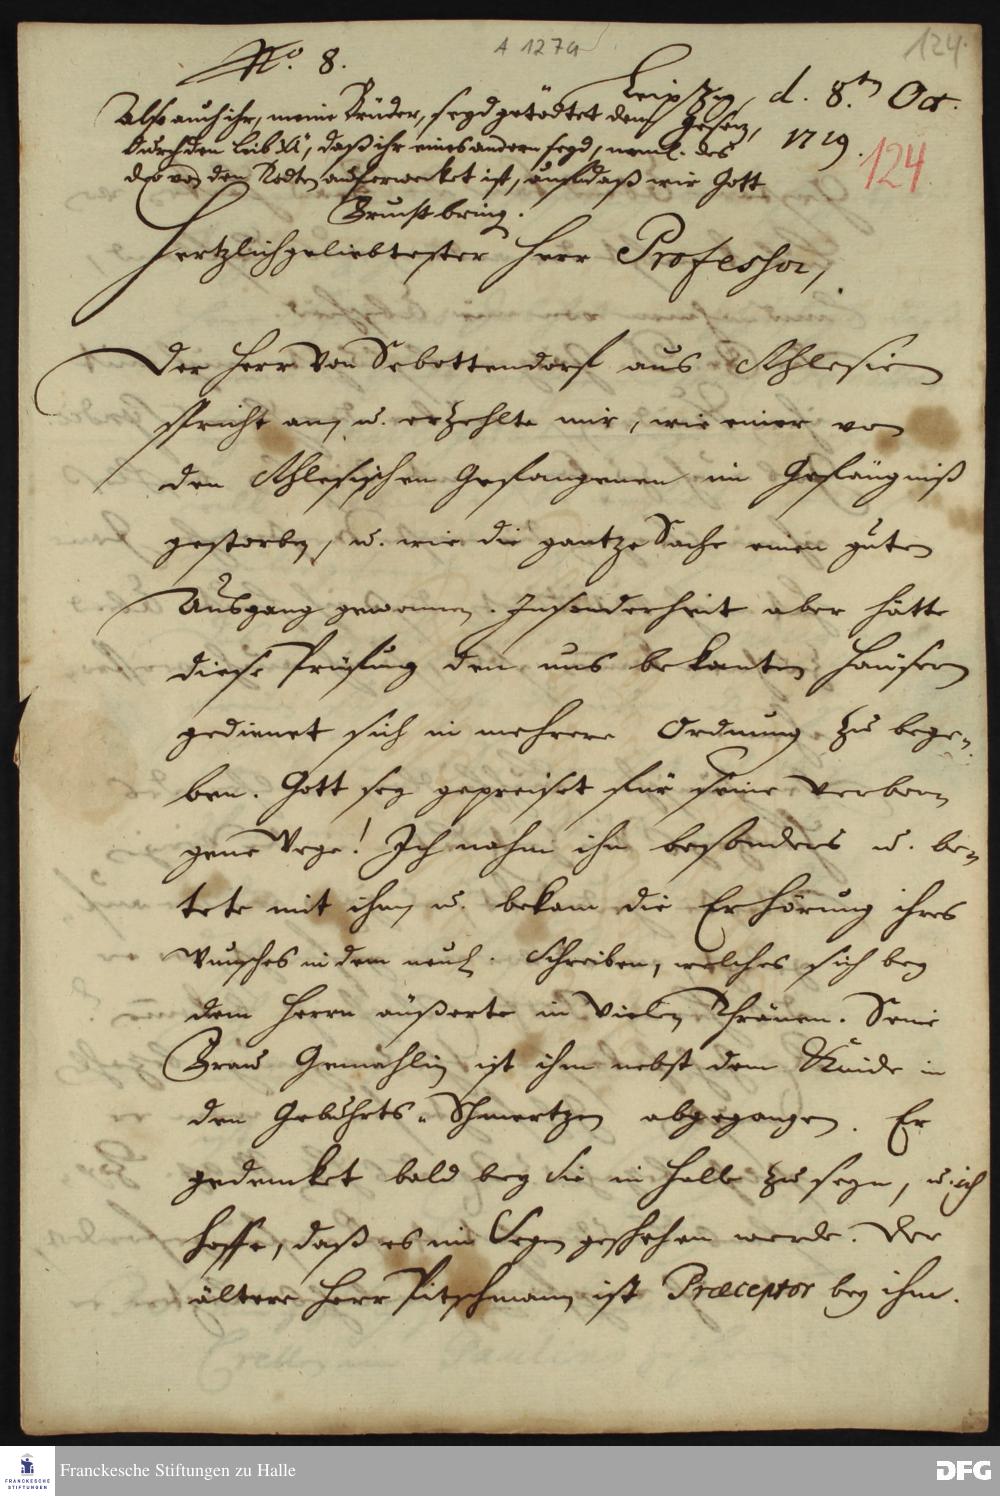 A 127a
124.
No. 8.
Leipzig, d. 8.ten Oct.
1719.
124
Also auch ihr, meine Brüder, seyd getödtet dem Gesetz,
durch den Leib Xi, daß ihr eines andern seyd, neml. des
der von den Todten auferwecket ist, auf daß wir Gott
Frucht bring.
Hertzlichgeliebtester Herr Professor,
Der Herr von Sebottendorf aus Schlesien
spricht an, u. erzehlte mir, wie einer von
den Schlesischen Gefangenen im Gefängniß
gestorben, u. wie die gantze Sache einen guten
Ausgang gewonnen. Insonderheit aber hätte
diese Prüfung den uns bekanten Häusern
gedienet sich in mehrere Ordnung zu bege-
ben. Gott sey gepreiset für seine verbor-
gene Wege! Ich nahm ihn besonders u. be-
tete mit ihm, u. bekam die Erhörung ihres
Wunsches in dem neul. Schreiben, welches sich bey
dem Herrn äußerte in vielen Thränen. Seine
Frau Gemahlin ist ihm nebst dem Kinde in
den Gebuhrts-Schmertzen abgegangen. Er
gedencket bald bey Sie in Halle zu seyn, u. ich
hoffe, daß es im Segen geschehen werde. Der
ältere Herr Pitschmann ist Præceptor bey ihm.
FRANCKESCHE
STIFTUNGEN
Franckesche Stiftungen zu Halle
DFG